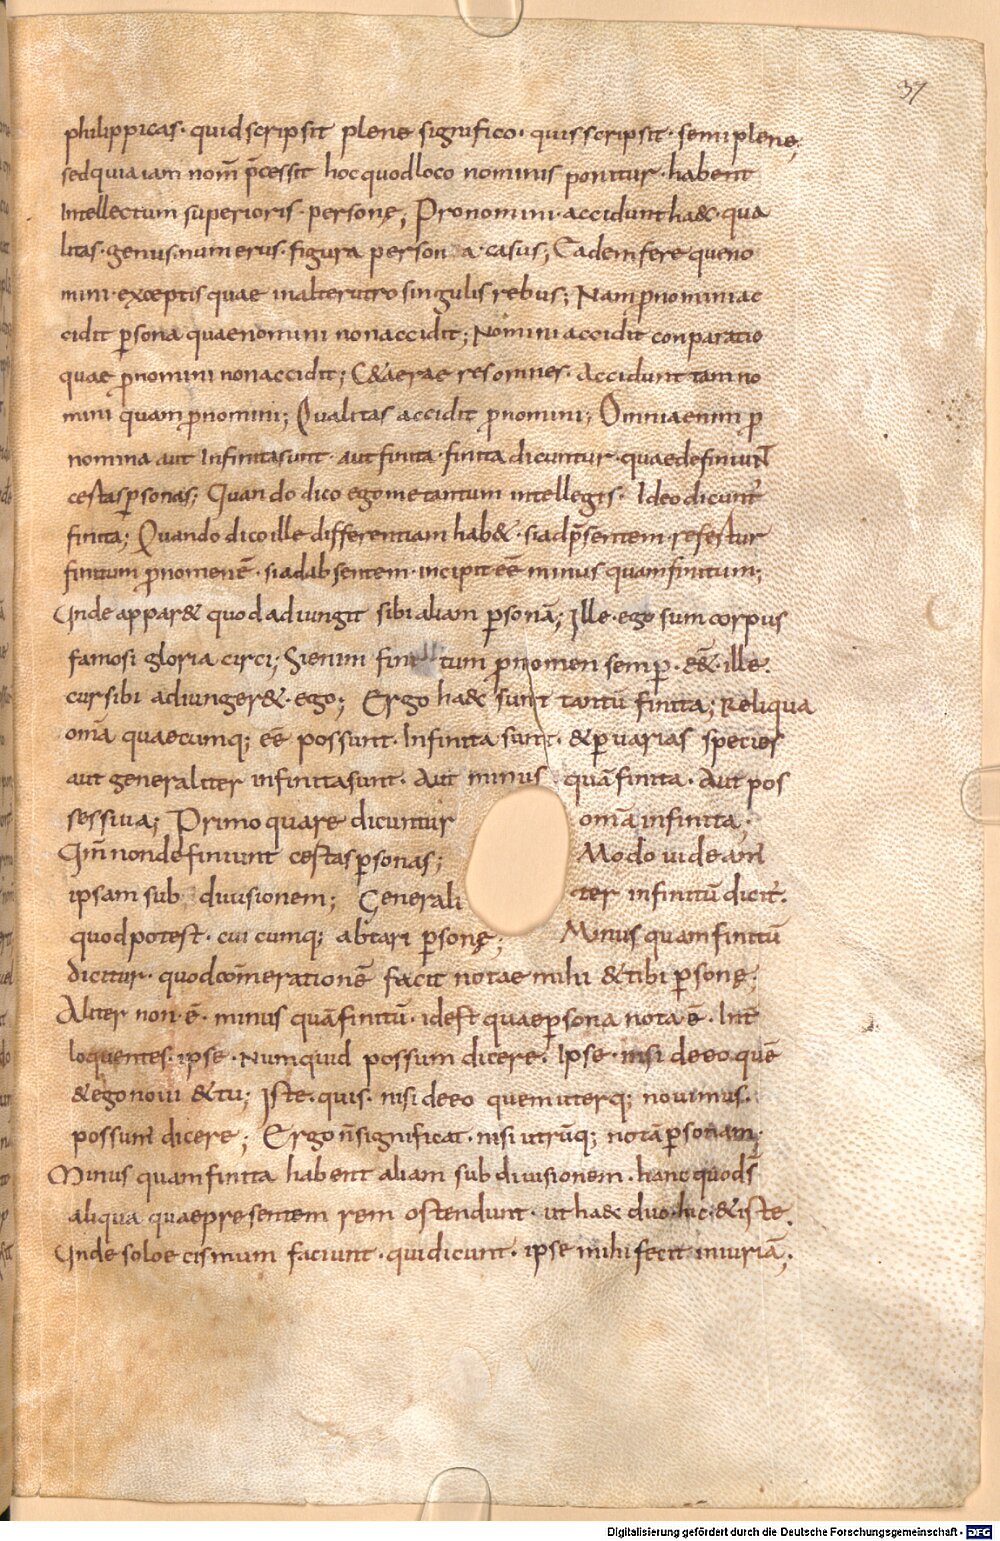 37
philippicas· quid scripsit plene significo· quis scripsit· semiplene;
sed quia iam nom̄ p̄cessit hoc quod loco nominis ponitur· habent
Intellectum superioris· personę; Pronomini· accidunt haec· qua
litas· genus· numerus· figura person a· casus; Eadem fere que no
mini· exceptis quae in alterutro singulis rebus; Nam p̄nomini ac
cidit p̱sona quae nomini non accidit; Nomini accidit conparatio
quae p̄nomini non accidit; C&aerae res omnes· Accidunt tam no
mini quam p̄nomini; Qualitas accidit p̄nomini; Omnia enim p̄
nomina aut Infinita sunt· aut finita· finita dicuntur· quae definiunt̄
certas p̱sonas; Quando dico ego me tantum intellegis· Ideo dicunt᷑
finita; Quando dico ille differentiam hab&· si ad p̄sentem· refertur
finitum p̄nomen ē· si ad absentem· incipit eē minus quam finitum;
Unde appar& quod adiungit sibi aliam p̱sonā; Ille· ego sum corpus
famosi gloria circi; Si enim fini tum p̄nomen semp̱· ee&· ille·
cur sibi adiunger&· ego; Ergo haec sunt tantū finita; Reliqua
om̄a quaecumq; eē possunt· Infinita sunt· & p̱ varias species
aut generaliter infinita sunt· Aut minus quā finita· Aut pos
sessiva; Primo quare dicuntur om̄a infinita;
Qm̄ non definiunt certas p̱sonas; Modo videam᷑
ipsam sub divisionem; Generali ter infinitū dicit᷑·
quod potest· cui cumq; abtari p̱sonę; Minus quam finitū
dicitur· quod com̄erationē facit notae mihi & tibi p̱sonę;
Aliter non· ē· minus quā finitū· id est quae p̱sona nota ē· Int̄
loquentes· ipse· Numquid possum dicere· Ipse· nisi de eo quē
& ego novi & tu; Iste· quis· nisi de eo quem uterq; novimus·
possum dicere; Ergo n̄ significat· nisi utrūq; notā p̱sonam;
Minus quam finita habent aliam sub divisionem· hanc quod s̄
aliqua quae presentem rem ostendunt· ut haec duo· hic· & iste·
Unde soloe cismum faciunt· qui dicunt· ipse mihi fecit iniuriā;
Digitalisierung gefördert durch die Deutsche Forschungsgemeinschaft - DFG